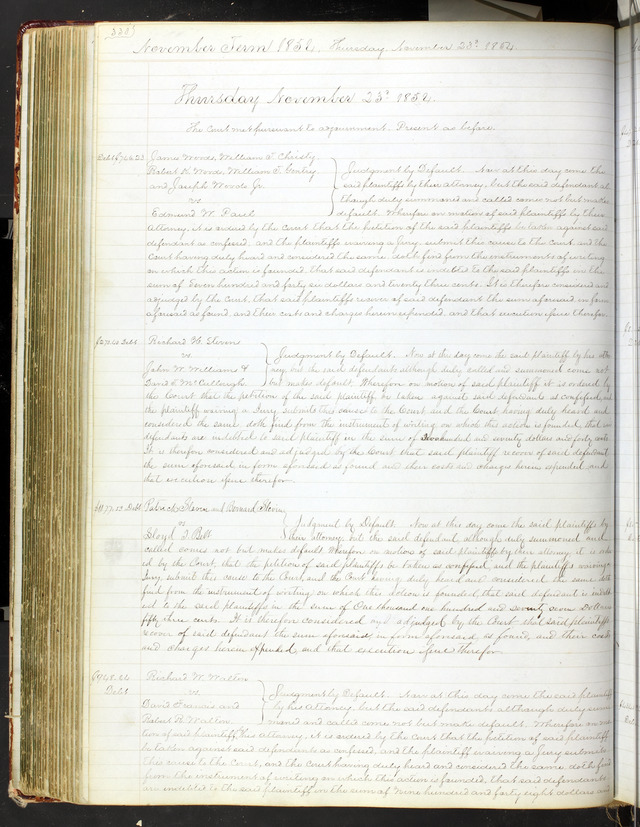 November Term 1854. Thursday November 23d 1854.
Thursday November 23d 1854.
The Court met pursuant to adjournment. Present as before.
Debt $746.23 James Woods, William T. Christy,
Robert K. Woods, William C. Gentry
and Joseph Woods Jr.
vs
Edmund W. Paul
Judgment by Default. Now at this day come the
said plaintiffs by their attorney, but the said defendant al
though duly summoned and called comes not but makes
default. Wherefore on motion of said plaintiffs by their
Attorney, it is ordered by the Court that the petition of the said plaintiffs be taken against said
defendant as confessed, and the plaintiffs waiving a Jury, submit this cause to the Court, and the
Court having duly heard and considered the same doth find from the instruments of writing
on which this action is founded, that said defendant is indebted to the said plaintiffs in the
sum of Seven hundred and forty six dollars and twenty three cents. It is therefore considered and
adjudged by the Court, that said plaintiffs recover of said defendant the sum aforesaid, in form
aforesaid as found, and their costs and charges herein expended, and that execution issue therefor.
Debt Richard H. Stevens
vs.
John W. Williams &
David McCullough
Judgment by Default. Now at this day come the said plaintiff by his attor
ney, but the said defendants although duly called and summoned come not
but make default. Wherefore on motion of said plaintiff it is ordered by
the Court that the petition of the said plaintiff be taken against said defendants as confessed, and
the plaintiff waiving a Jury submits this cause to the Court and the Court having duly heard and
considered the same doth find from the instrument of writing on which this action is founded, that said
defendants are indebted to said plaintiff in the sum of hundred and seventy dollars and forty cents.
It is therefore considered and adjudged by the Court that said plaintiff recover of said defendants
the sum aforesaid in form aforesaid as found and their costs and charges herein expended and
that execution issue therefor.
$1177.53 Debt Patrick Slevin and Bernard Slevin
vs
Lloyd J. Belt
Judgment by Default. Now at this day come the said plaintiffs by
their attorney but the said defendant although duly summoned and
called comes not but makes default. Wherefore on motion of said plaintiffs by their attorney it is order
ed by the Court, that the petition of said plaintiffs be taken as confessed and the plaintiffs waiving a
Jury, submit this cause to the Court, and the Court having duly heard and considered the same doth
find from the instrument of writing on which this action is founded that said defendant is indebt
ed to the said plaintiffs in the sum of One thousand one hundred and seventy seven Dollars
fifty three cents. It is therefore considered and adjudged by the Court that said plaintiffs
recover of said defendant the sum aforesaid in form aforesaid as found, and their costs
and charges herein expended, and that execution issue therefor.
Debt
Richard W. Walton
vs.
David Francis and
Robert A. Walton
Judgment by Default. Now at this day come the said plaintiff
by his Attorney, but the said defendants although duly sum
moned and called come not but make default. Wherefore on mo
tion of said plaintiff by his Attorney, it is ordered by the Court that the petition of said plaintiff
be taken against said defendants as confessed, and the plaintiff waiving a Jury submits
this cause to the Court, and the Court having duly heard and considered the same, doth find
from the instrument of writing on which this action is founded, that said defendants
are indebted to the said plaintiff in the sum of Nine hundred and forty eight dollars and